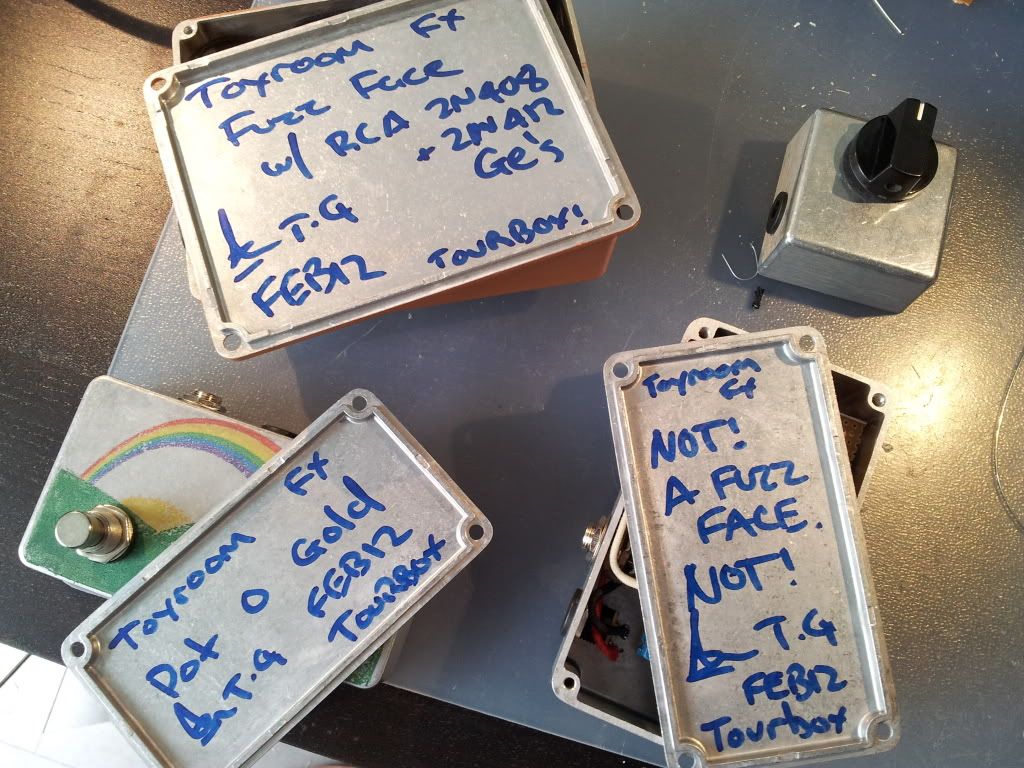 Toyroom FX
Fuzz Face
w/ RCA 2N408
+ 2N412
Ge's
T.G
FEB12 TOURBOX!
Toyroom FX
Pot O Gold
T.G FEB12
TOURBOX
Toyroom
FX
NOT!
A FUZZ
FACE.
NOT!
T.G
FEB12
Tourbox